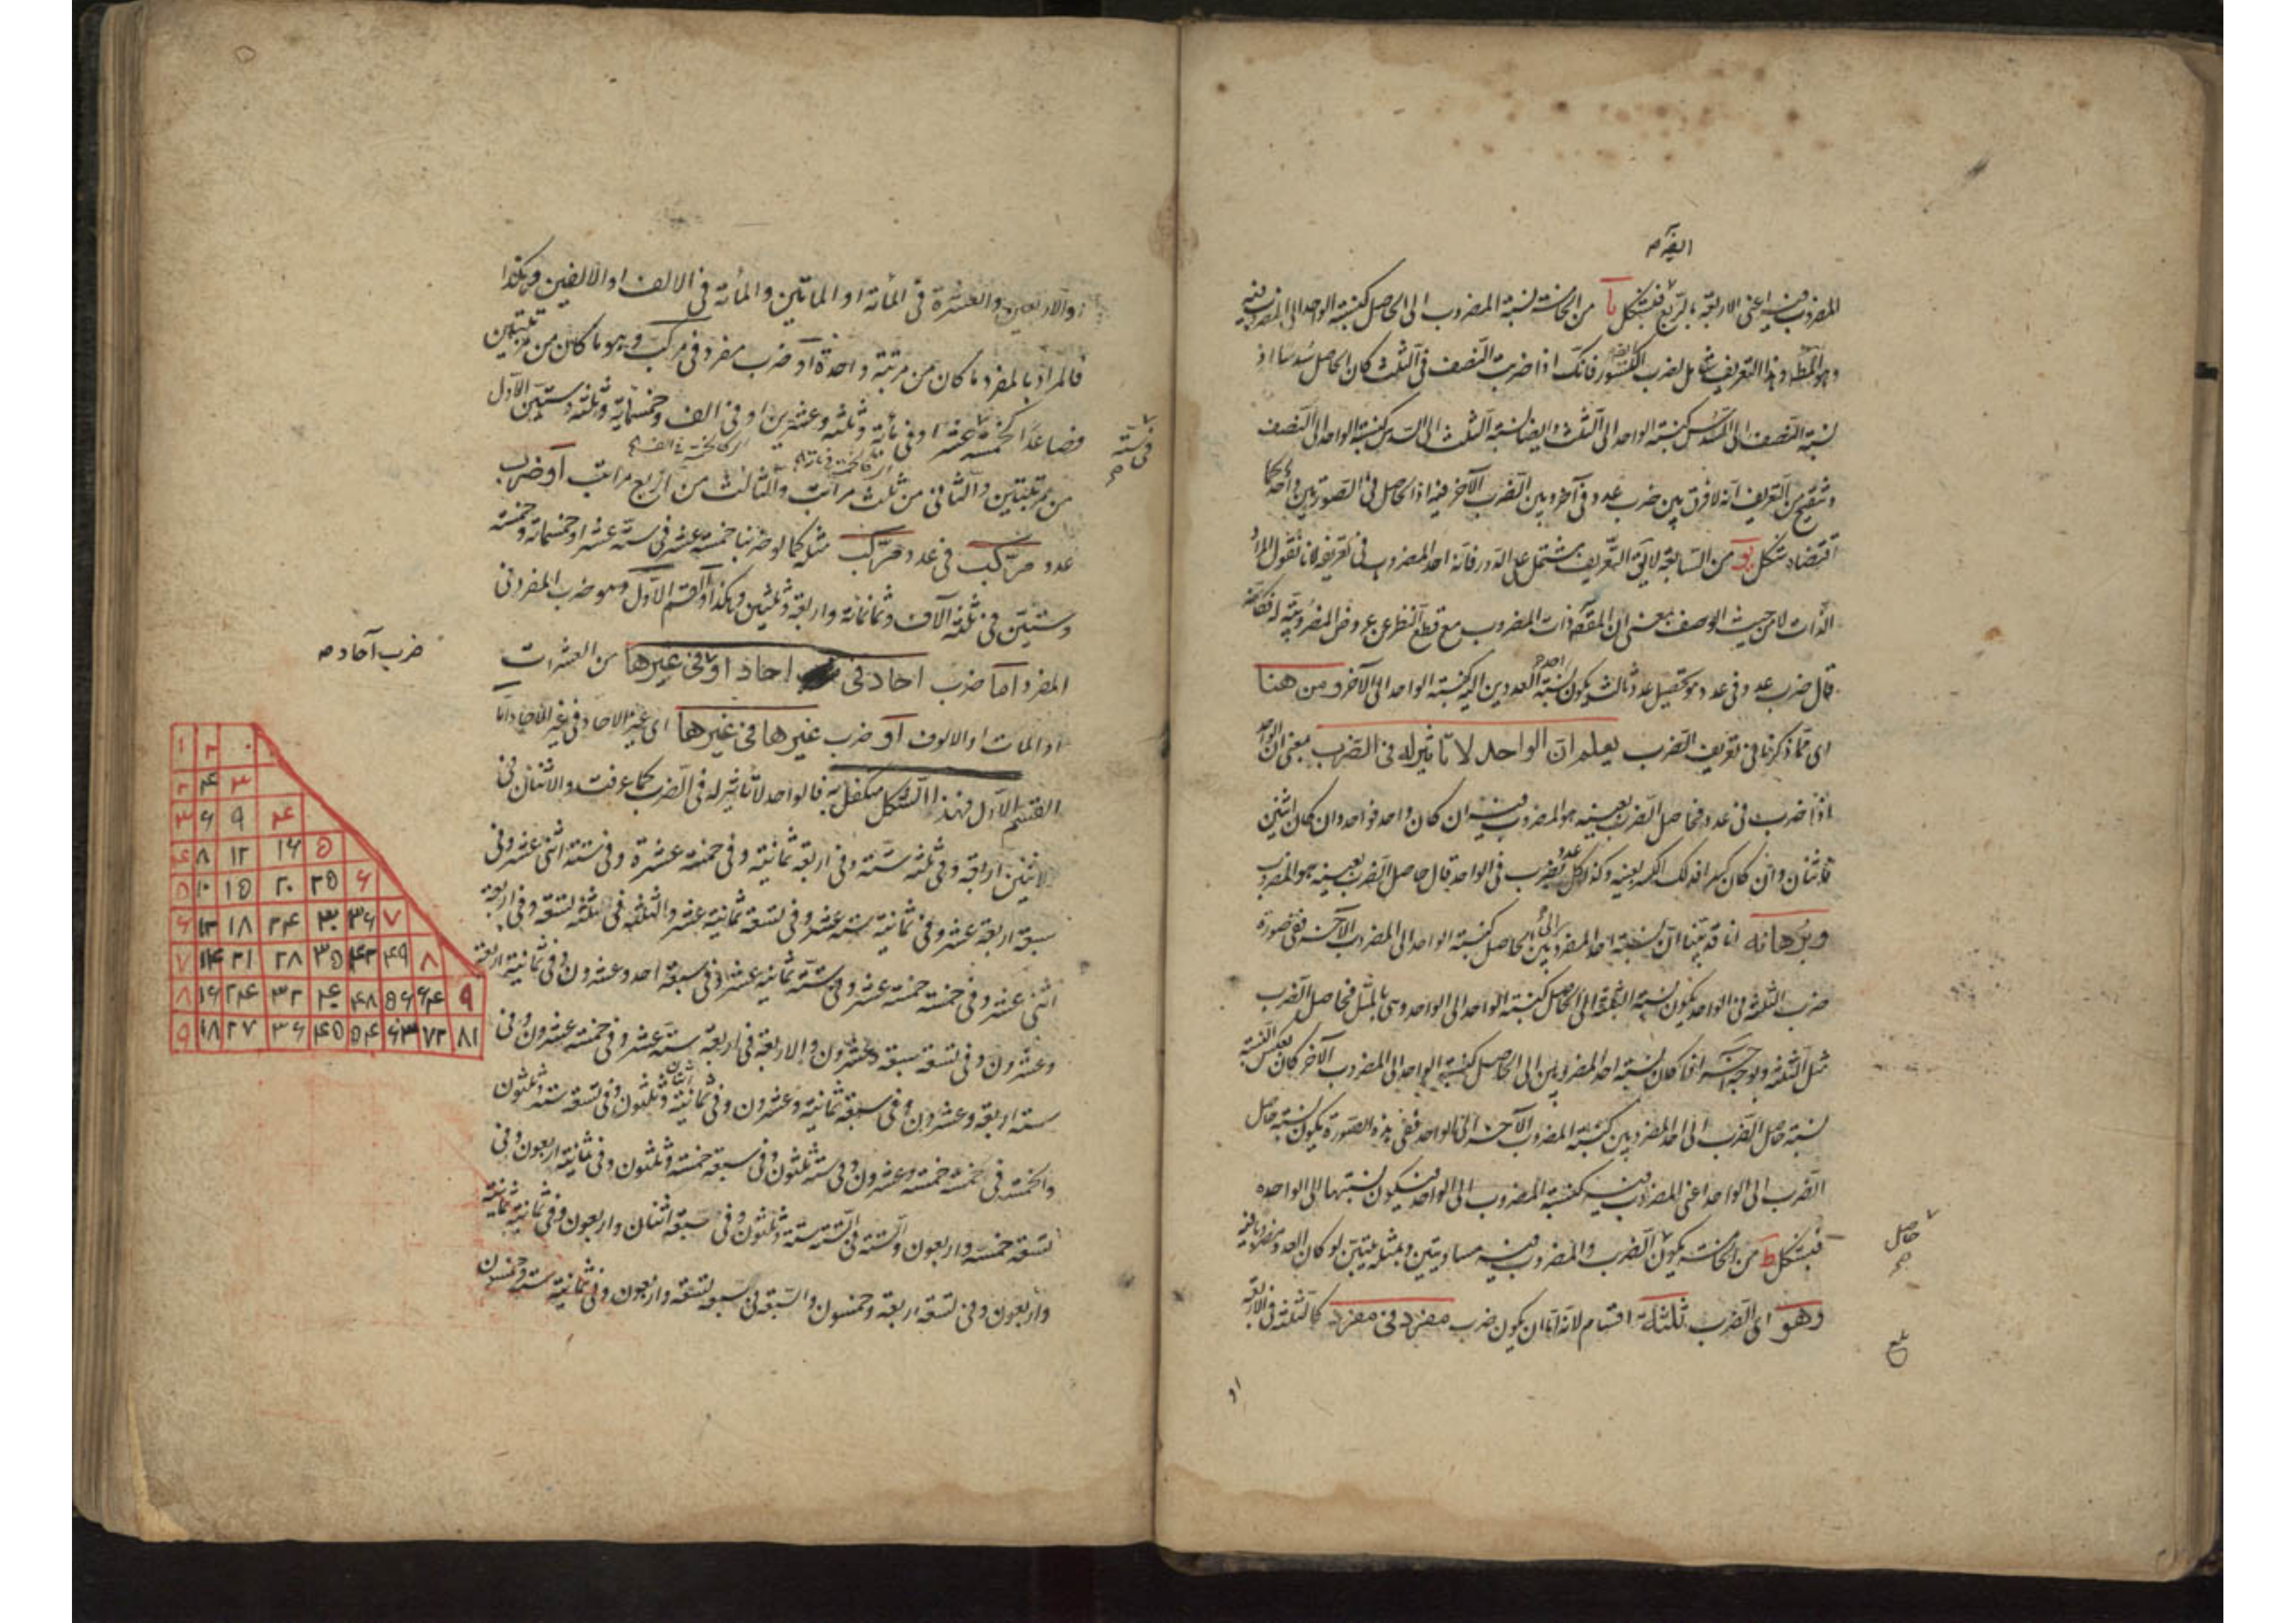 ايضًا م
المضروب فيه اعنى الاربعة بالربع فبشكل يا من الخامسة نسبة المضروب الى الحاصل كنسبة الواحد الى المضروب فيه
وهو المط وهذا التعريف شامل لضرب الكسور فانك اذا ضربت النصف فى الثلث كان الحاصل سدسا اذ
نسبة النصف الى السدس كنسبة الواحد الى الثلث وايضا نسبة الثلث الى السدس كنسبة الواحد الى النصف
من التعريف انه لا فرق بين ضرب عدد فى آخر وبين الضرب الآخر فيه اذ الحاصل فى الصورتين واحد كما
شكل يو من السابعة لا يق التعريف مشتمل على الدور فانه اخذ المضروب فى تعريفه لانا نقول المراد
الذات لا من حيث الوصف بمعنى ان المقصود ذات المضروب مع قطع النظر عن عروض المضروبية له فكانه
قال ضرب عدد فى عدد هو تحصيل عدد ثالث يكون نسبة احد العددين اليه كنسبة الواحد الى الآخر ومن هنا
اى مما ذكرنا فى تعريف الضرب يعلم ان الواحد لا تاثير له فى الضرب بمعنى ان الواحد
اذا ضرب فى عدد فحاصل الضرب بعينه هو المضروب فيه ان كان واحد فواحد وان كان اثنين
فاثنان وان كان كسرا فذلك الكسر بعينه وكذا كل عدد يضرب فى الواحد قال حاصل الضرب بعينه هو المضروب
وبرهانه انا قد بينا ان نسبة احد المضروبين الى الحاصل كنسبة الواحد الى المضروب الآخر ففى صورة
ضرب الثلثة فى الواحد يكون نسبة الثلثة الى الحاصل كنسبة الواحد الى الواحد وهى بالمثل فحاصل الضرب
مثل الثلثة وبوجه آخر لما كان نسبة احد المضروبين الى الحاصل كنسبة الواحد الى المضروب الآخر كان بعكس النسبة
نسبة حاصل الضرب الى احد المضروبين كنسبة المضروب الآخر الى الواحد ففى هذه الصورة يكون نسبة حاصل
الضرب الى الواحد اعنى المضروب فيه كنسبة المضروب الى الواحد فيكون نسبتهما الى الواحده
فبشكل ط من الخامسة يكون الضرب والمضروب فيه مساويين
حاصل
وهو اى الضرب ثلثة اقسام لانه اما ان يكون ضرب مفرد فى مفرد كالثلثة فى الاربعة
بلغ
او
او الاربعين والعشرة فى المائة او الماتين والمائة فى الالف او الالفين وهكذا
فالمراد بالمفرد ما كان من مرتبة واحدة او ضرب مفرد فى مركب وهو ما كان من مرتبتين
فصاعدا كخمسة عشر او فى مائة وثلثة وعشرين او فى الف وخمسمائة وثلثة وستين الاول
فى ستة
من مرتبتين والثانى من ثلث مراتب والثالث من اربع مراتب او ضرب
عدد مركب فى عدد مركب مثلا كما لو ضربنا خمسة عشر فى ستة عشر او خمسمائة وخمسة
وستين فى ثلثة آلاف وثمانمائة واربعة وثلثين وهكذا والقسم الاول وهو ضرب المفرد فى
المفرد اما ضرب احاد فى احاد او فى غيرها من العشرات
ضرب آحاد م
او المات او الالوف او ضرب غيرها فى غيرها اى غير الاحاد فى غير الاحاد اما
القسم الاول فهذا الشكل متكفل به فالواحد لا تاثير له فى الضرب كما عرفت والاثنان فى
الاثنين اربعة وفى ثلثة ستة وفى اربعة ثمانية وفى خمسة عشرة وفى ستة اثنى عشر وفى
سبعة اربعة عشر وفى ثمانية ستة عشر وفى تسعة ثمانية عشر والثلثة فى ثلثة تسعة وفى اربعة
اثنى عشر وفى خمسة خمسة عشر وفى ستة ثمانية عشر وفى سبعة احد وعشرون وفى ثمانية اربعة
وعشرون وفى تسعة سبعة وعشرون والاربعة فى اربعة ستة عشر وفى خمسة عشرون وفى
ستة اربعة وعشرون وفى سبعة ثمانية وعشرون وفى ثمانية اثنان وثلثون وفى تسعة ستة وثلثون
والخمسة فى خمسة خمسة وعشرون وفى ستة ثلثون وفى سبعة خمسة وثلثون وفى ثمانية اربعون وفى
تسعة خمسة واربعون والستة فى الستة ستة وثلثون وفى سبعة اثنان واربعون وفى ثمانية ثمانية
واربعون وفى تسعة اربعة وخمسون والسبعة فى سبعة تسعة واربعون وفى ثمانية ستة وخمسون
۱ ۲
۲ ۴ ۳
۳ ۶ ۹ ۴
۴ ۸ ۱۲ ۱۶ ۵
۵ ۱۰ ۱۵ ۲۰ ۲۵ ۶
۶ ۱۲ ۱۸ ۲۴ ۳۰ ۳۶ ۷
۷ ۱۴ ۲۱ ۲۸ ۳۵ ۴۲ ۴۹ ۸
۸ ۱۶ ۲۴ ۳۲ ۴۰ ۴۸ ۵۶ ۶۴ ۹
۹ ۱۸ ۲۷ ۳۶ ۴۵ ۵۴ ۶۳ ۷۲ ۸۱